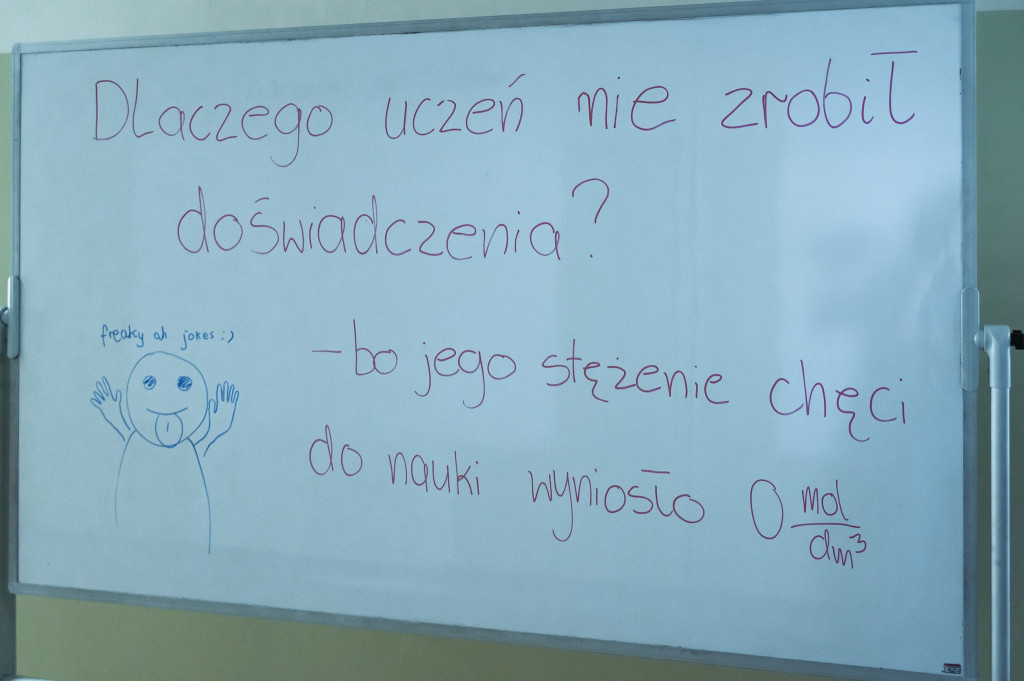 Dlaczego uczeń nie zrobił
doświadczenia?
freaky ah jokes :)
- bo jego stężenie chęci
do nauki wyniosło 0 mol/dm³